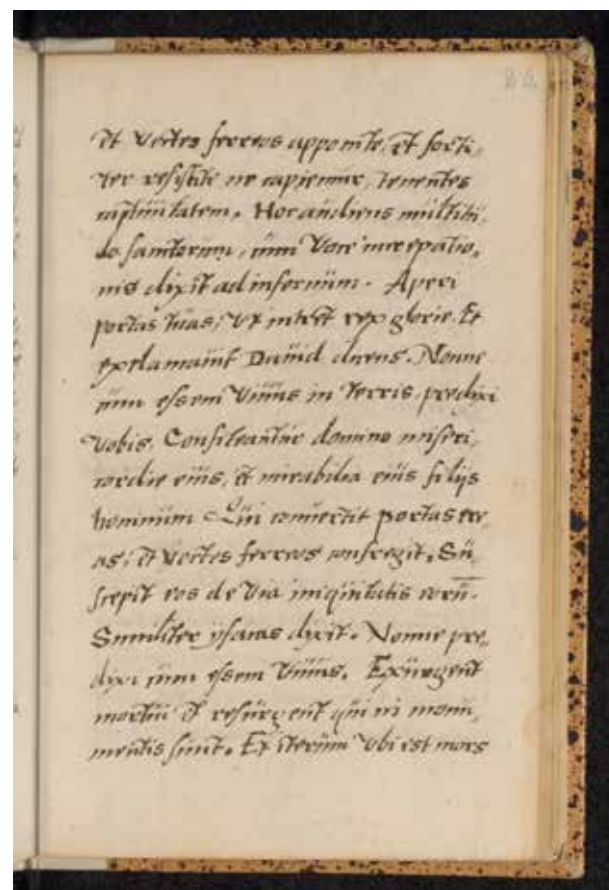 et vectes ferreos apponite, et forti,
ter resistite ne capiemur, tenentes
captiuitatem. Hoc audiens multitu,
do sanctorum, cum voce increpatio,
nis dixit ad infernum. Aperi
portas tuas, vt intret rex glorie. Et
exclamauit Dauid dicens. Nonne
cum essem viuus in terris, predixi
vobis. Confiteantur domino miseri,
cordie eius, et mirabilia eius filijs
hominum Qui contertit portas ere,
as, et vectes ferreos confregit. Su,
scepit eos de via iniquitatis eorū.
Similiter ysaias dixit. Nonne pre,
dixi cum essem viuus. Exurgent
mortui et resurgent qui in monu,
mentis sunt. Et iterum vbi est mors